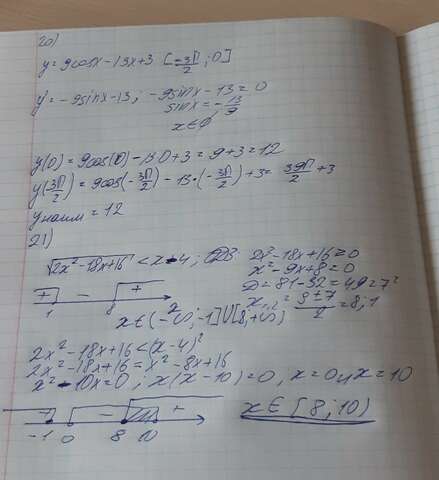 20)
y = 9cosx - 13x + 3 [-3π/2 ; 0]
y' = -9sinx - 13 ; -9sinx - 13 = 0
sinx = -13/9
x ∈ ∅
y(0) = 9cos(0) - 13·0 + 3 = 9 + 3 = 12
y(-3π/2) = 9cos(-3π/2) - 13·(-3π/2) + 3 = 39π/2 + 3
yнаим = 12
21)
√2x² - 18x + 16 < x - 4 ; ОДЗ: 2x² - 18x + 16 = 0
x² - 9x + 8 = 0
D = 81 - 32 = 49 = 7²
+ - + x₁,₂ = 9±7/2 = 8 ; 1
1 8
x ∈ (-∞ ; -1] U [8 ; +∞)
2x² - 18x + 16 < (x - 4)²
2x² - 18x + 16 = x² - 8x + 16
x² - 10x = 0 ; x(x - 10) = 0 , x = 0 и x = 10
- + x ∈ [8 ; 10)
-1 0 8 10